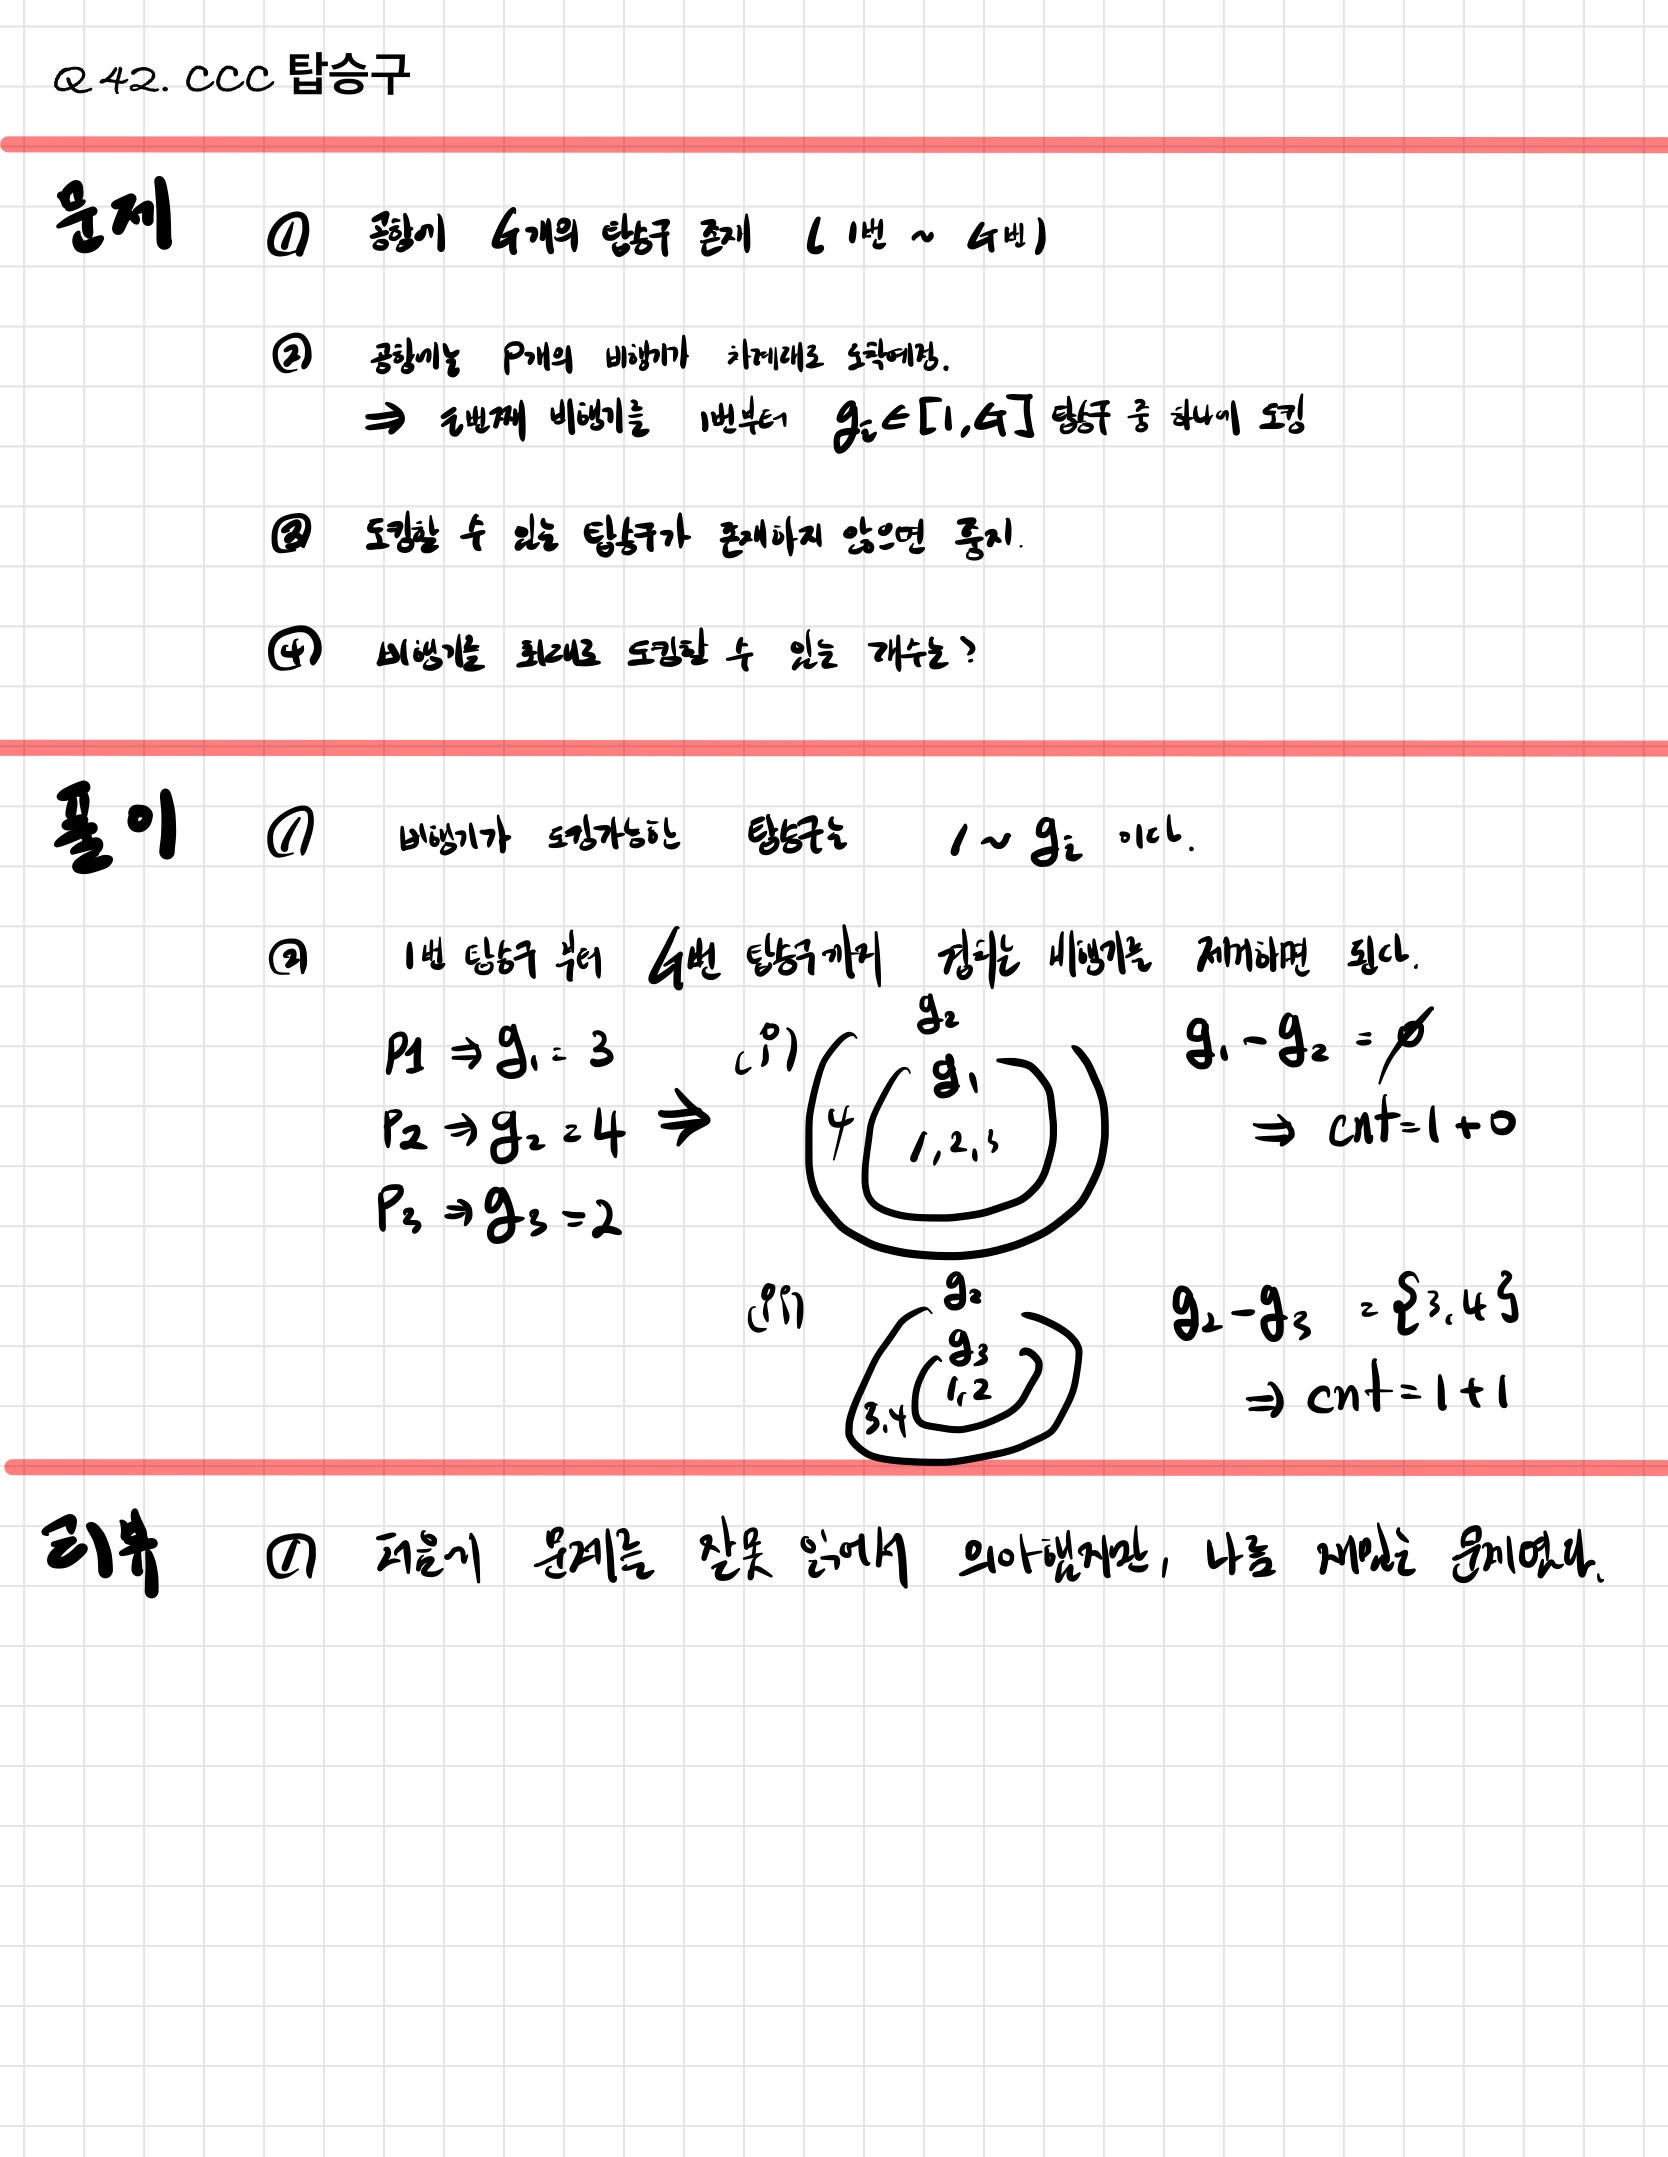 Q42. CCC 탑승구
문제
① 공항에 G개의 탑승구 존재 (1번 ~ G번)
② 공항에는 P개의 비행기가 차례대로 도착예정.
⇒ i번째 비행기를 1번부터 gi ∈ [1, G] 탑승구 중 하나에 도킹
③ 도킹할 수 있는 탑승구가 존재하지 않으면 중지.
④ 비행기를 최대로 도킹할 수 있는 개수는?
풀이
① 비행기가 도킹가능한 탑승구는 1 ~ gi 이다.
② 1번 탑승구 부터 G번 탑승구까지 겹치는 비행기를 제거하면 된다.
P1 ⇒ g1 = 3
P2 ⇒ g2 = 4
P3 ⇒ g3 = 2
⇒
(i) g2
g1
4
1, 2, 3
g1 - g2 = ∅
⇒ cnt = 1 + 0
(ii) g2
g3
1, 2
3, 4
g2 - g3 = {3, 4}
⇒ cnt = 1 + 1
리뷰
① 처음에 문제를 잘못 읽어서 의아했지만, 나름 재밌는 문제였다.